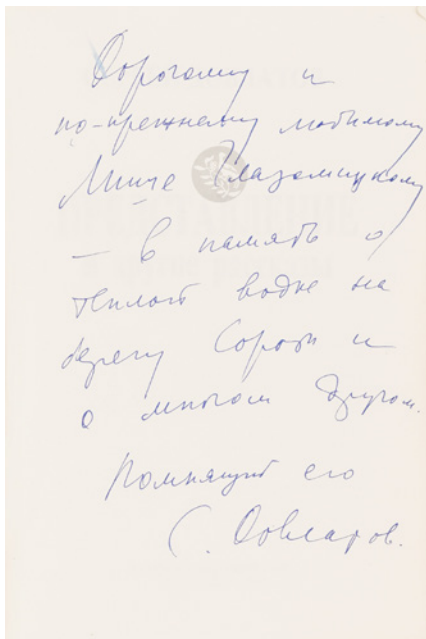 Дорогому и
по-прежнему любимому
Мише Глазомицкому
– в память о
теплой водке на
берегу Сороти и
о многом другом.
Помнящий его
С. Довлатов.